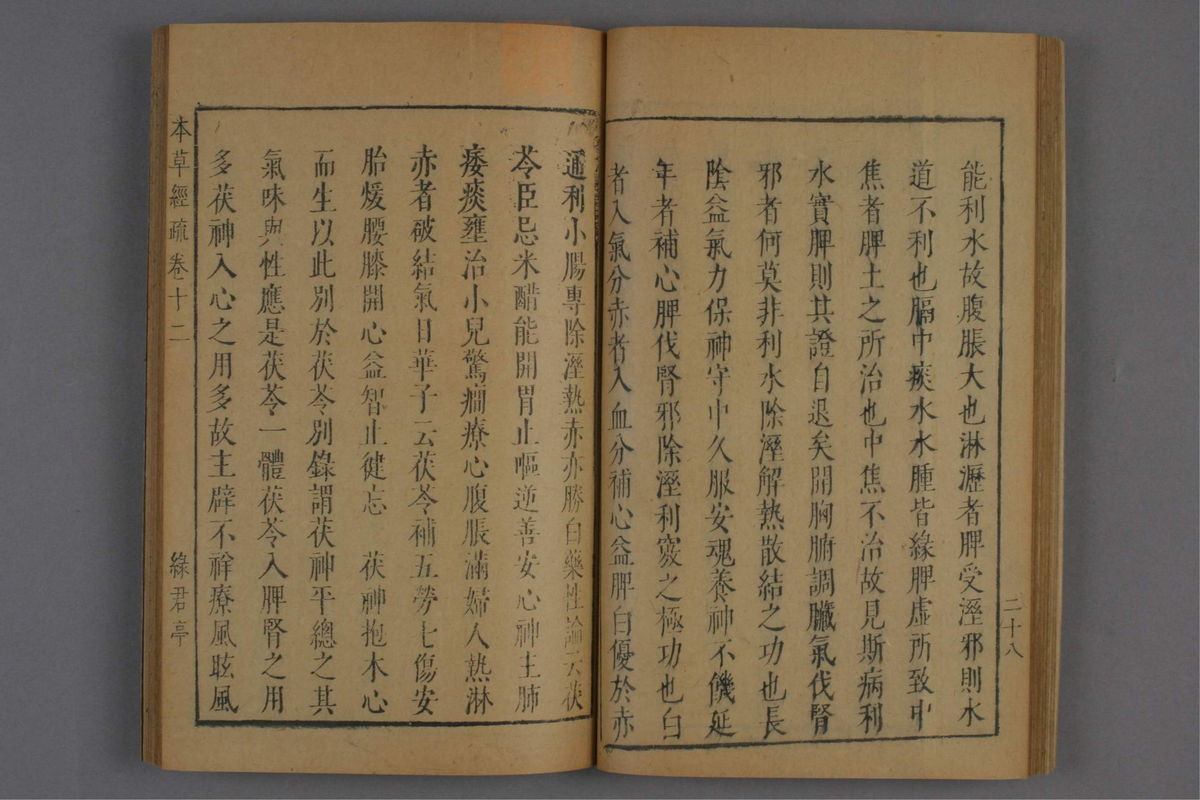 能利水故腹脹大也淋瀝者脾受溼邪則水
道不利也膈中痰水水腫皆緣脾虛所致中
焦者脾土之所治也中焦不治故見斯病利
水實脾則其證自退矣開胸腑調臟氣伐腎
邪者何莫非利水除溼解熱散結之功也長
陰益氣力保神守中久服安魂養神不饑延
年者補心脾伐腎邪除溼利竅之極功也白
者入氣分赤者入血分補心益脾白優於赤
二十八
通利小腸專除溼熱赤亦勝白藥性論云茯
苓臣忌米醋能開胃止嘔逆善安心神主肺
痿痰壅治小兒驚癇療心腹脹滿婦人熱淋
赤者破結氣日華子云茯苓補五勞七傷安
胎煖腰膝開心益智止健忘 茯神抱木心
而生以此別於茯苓別錄謂茯神平總之其
氣味與性應是茯苓一體茯苓入脾腎之用
多茯神入心之用多故主辟不祥療風眩風
本草經疏卷十二
綠君亭